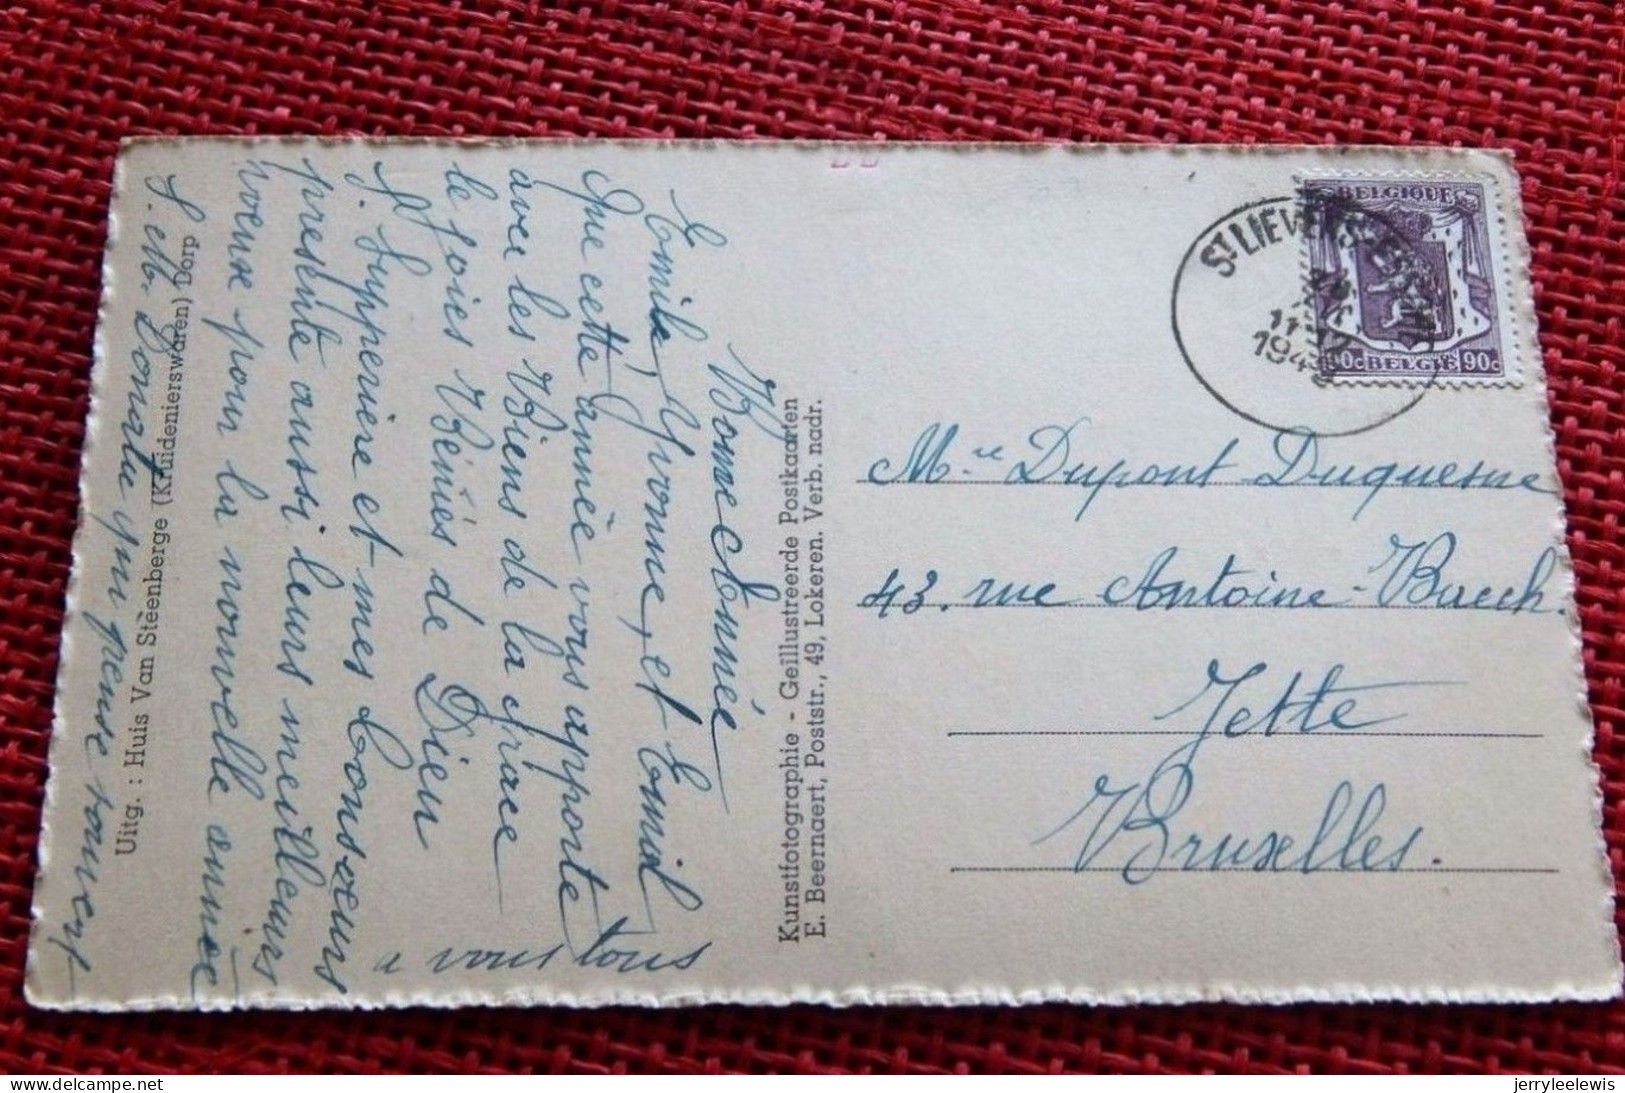 Bonne Année
Emile, Yvonne, et Emil
Que cette année vous apporte
avec les Biens de la grâce
le joies Bénies de Dieu
à vous tous
S. Supperière et mes Consœurs
presente aussi leurs meilleurs
voeux pour la nouvelle année
S. M. Donata qui pense souvent
Uitg. : Huis Van Steenberge (Kruidenierswaren) Dorp
Kunstfotographie - Geïllustreerde Postkaarten
E. Beernaert, Poststr., 49, Lokeren. Verb. nadr.
ST LIEVENS-
11
194
BELGIQUE
90c BELGIE 90c
Mme Dupont Duquesne
43. rue Antoine-Baeck.
Jette
Bruxelles.
jerryleelewis